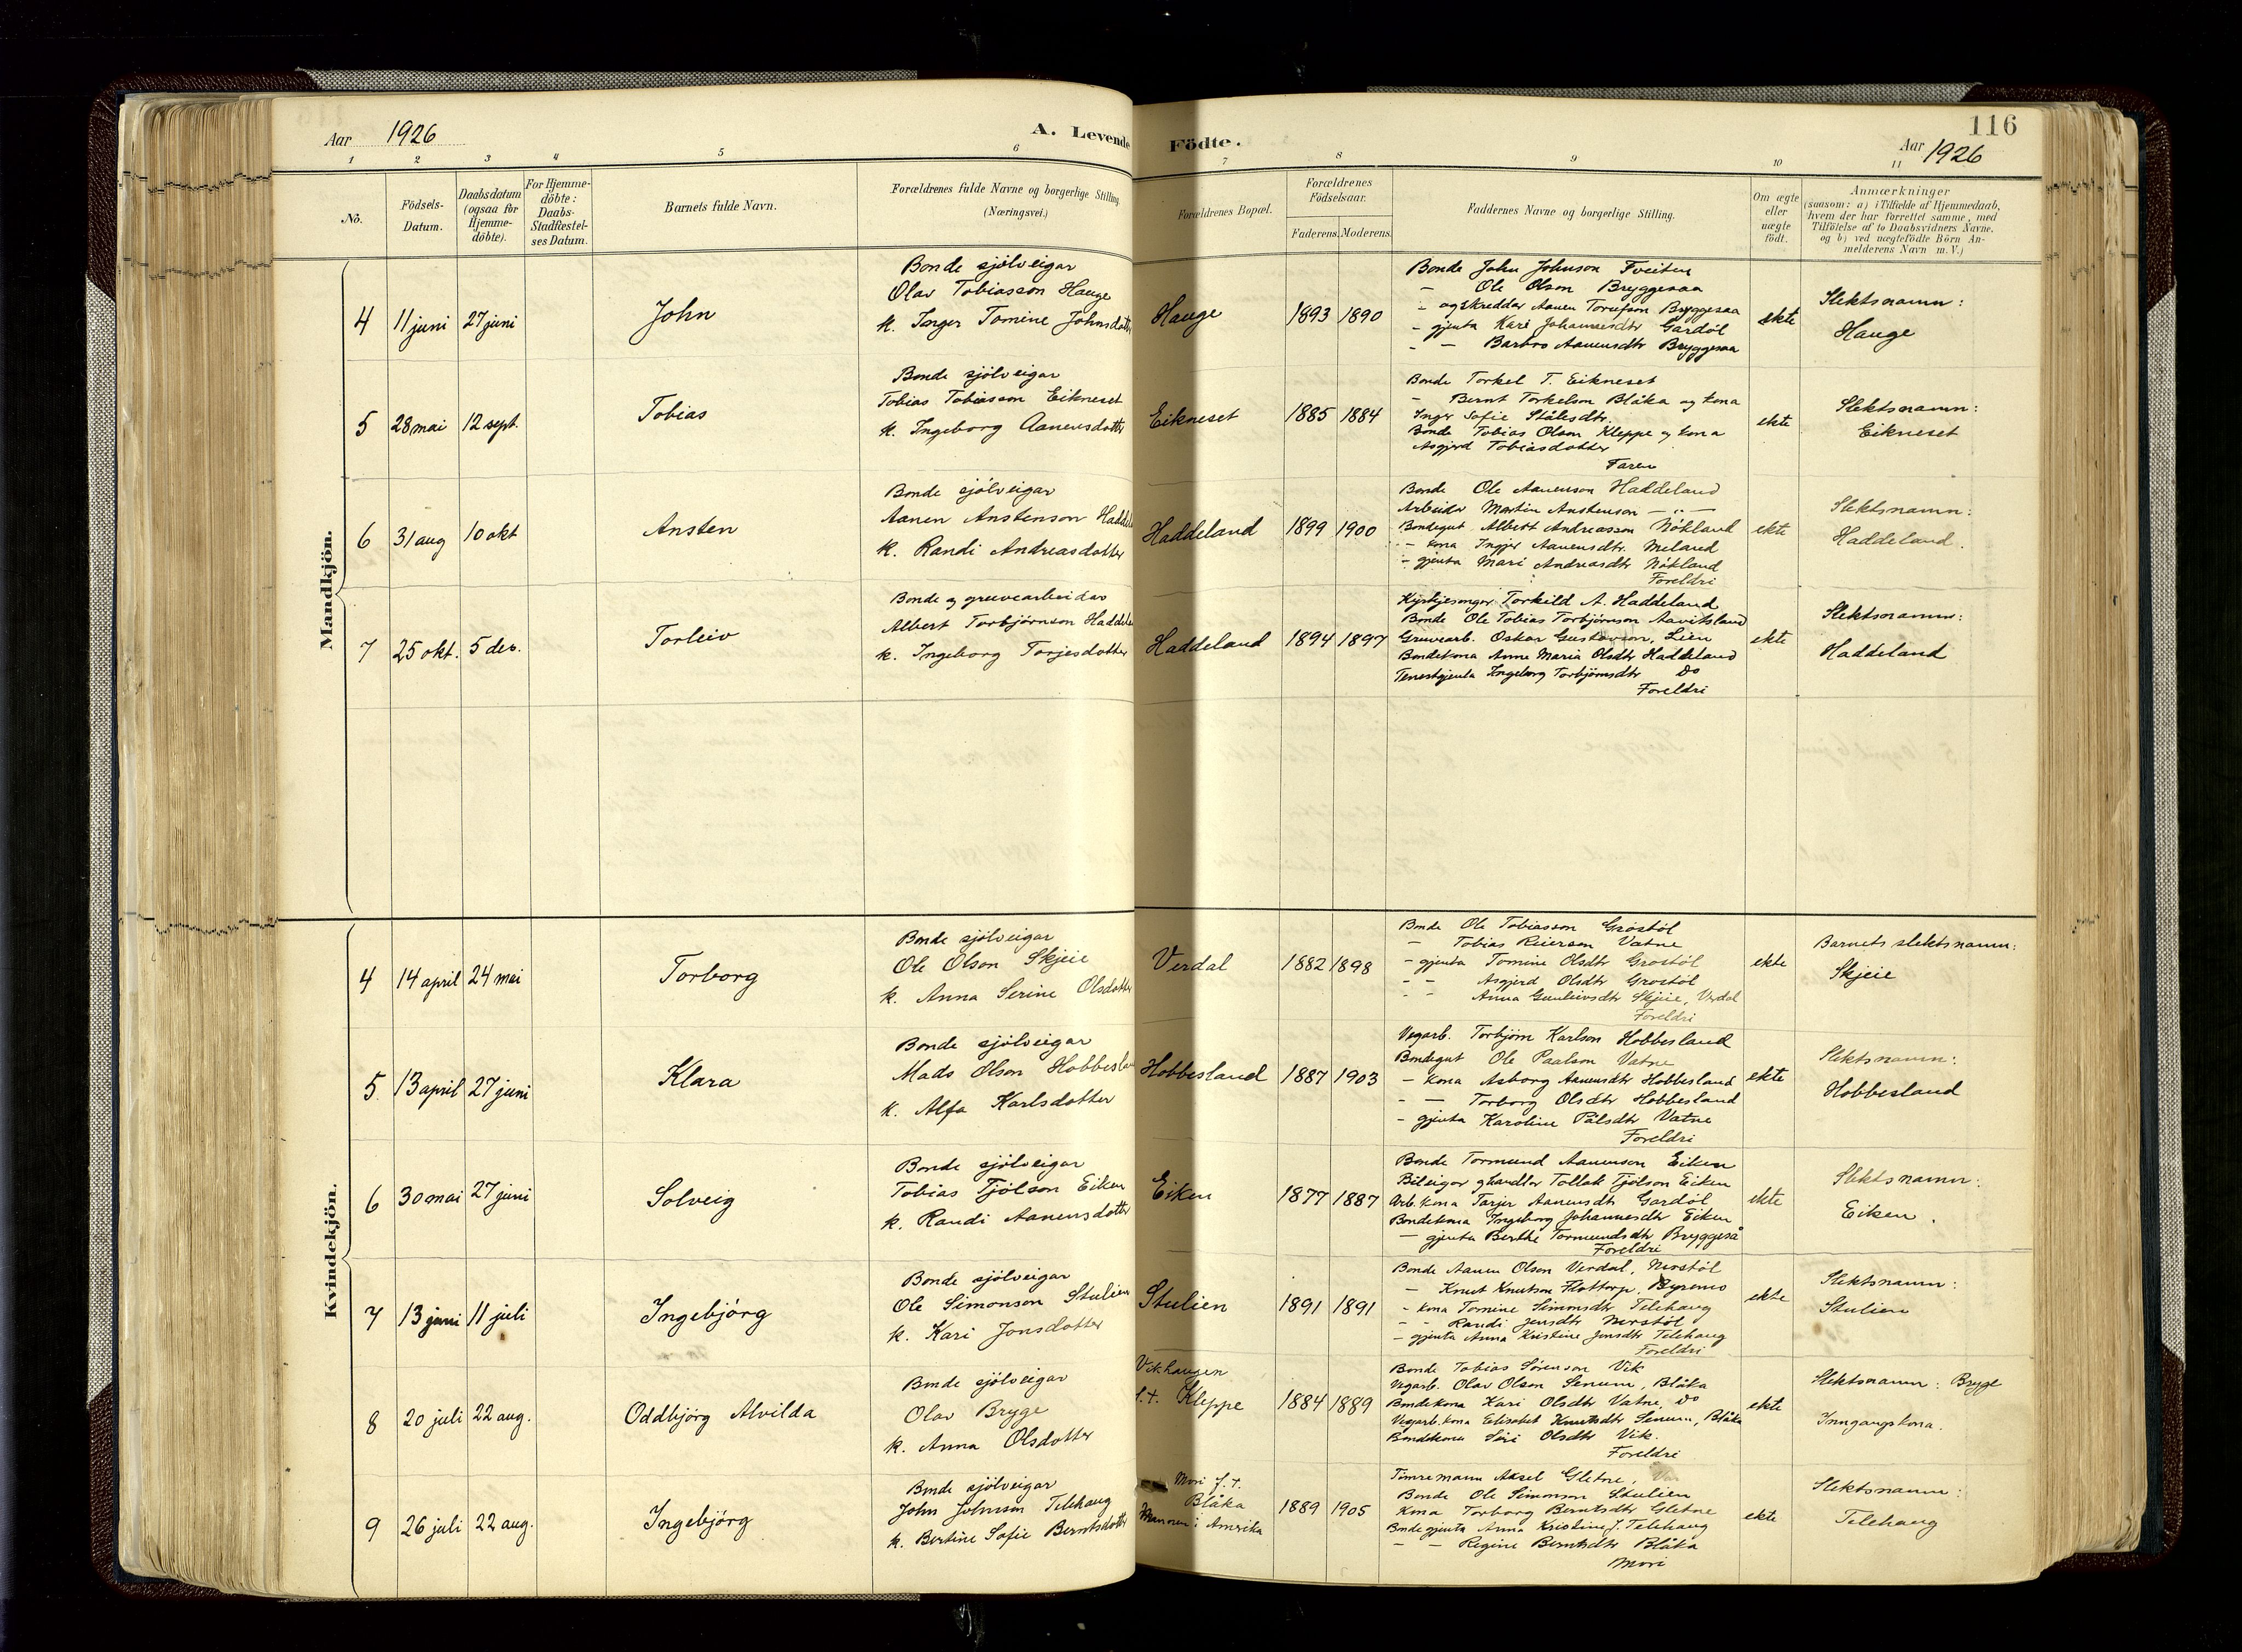 Aar 1926
A. Levende Födte.
116
Aar 1926
1 2 3 4 5 6 7 8 9 10 11
No.
Födsels-Datum.
Daabsdatum (ogsaa for Hjemme-döbte).
For Hjemme-döbte: Daabs-Stadfæstel-ses Datum.
Barnets fulde Navn.
Forældrenes fulde Navne og borgerlige Stilling (Næringsvei.)
Forældrenes Bopæl.
Forældrenes Födselsaar.
Faderens. Moderens.
Faddernes Navne og borgerlige Stilling.
Om ægte eller uægte født.
Anmærkninger
(saasom: a) i Tilfælde af Hjemmedaab,
hvem der har forrettet samme, med
Tilföielse af to Daabsvidners Navne.
og b) ved uægtefödte Börn An-
melderens Navn m.V.)
Mandkjön.
4 11 juni 27 juni John
Bonde sjölveigar
Olav Tobiasson Hauge
k. Inger Tomine Johnsdotter
Hauge 1893 1890
Bonde John Johnson Tveiten
- Ole Olson Bryggesaa
- og skreddar Aanen Torufson Bryggesaa
- gjenta Kari Johannesdtr Gardöl
- - Barbro Aanensdtr Bryggesaa
ekte
Slektsnamn:
Hauge
5 28 mai 12 sept. Tobias
Bonde sjölveigar
Tobias Tobiasson Eikneset
k. Ingeborg Aanensdotter
Eikneset 1885 1884
Bonde Torkel T. Eikneset
- Bernt Torkelson Blåka og kona
Inger Sofie Ståлesdtr.
Bonde Tobias Olson Kleppe og kona
Asgjerd Tobiasdotter
Faren
ekte
Slektsnamn:
Eikneset
6 31 aug 10 okt Ansten
Bonde sjölveigar
Aanen Anstenson Haddel
k. Randi Andreasdotter
Haddeland 1899 1900
Bonde Ole Aanenson Haddeland
Arbeidar Martin Anstenson - " -
Bondegut Albert Andreasson Nökland
- kona Ingjer Aanensdtr. Meland
- gjenta Mari Andreasdtr Nökland
Foreldri
ekte
Slektsnamn:
Haddeland.
7 25 okt. 5 des. Torleiv
Bonde og gruvearbeidar
Albert Torbjörnson Haddel
k. Ingeborg Torjesdotter
Haddeland 1894 1897
Kyrkjesongar Torkild A. Haddeland
Bonde Ole Tobias Torbjörnson Aavitsland
Gruvearb. Oskar Gustavson, Lien
Bondekona Anne Maria Olsdtr Haddeland
Tenestgjenta Ingeborg Torbjörnsdtr Do
Foreldri
ekte
Slektsnamn:
Haddeland
Kvindekjön.
4 14 april 24 mai Torborg
Bonde sjölveigar
Ole Olson Skjeie
k. Anna Serine Olsdotter
Verdal 1882 1898
Bonde Ole Tobiasson Grostöl
- Tobias Reierson Vatne
- gjenta Tomine Olsdtr Grostöl
- - Asgjerd Olsdtr Grostöl
- - Anna Gunleivsdtr Skjeie, Verdal
Foreldri
ekte
Barnets slektsnamn:
Skjeie
5 13 april 27 juni Klara
Bonde sjölveigar
Mads Olson Hobbeslan
k. Alfa Karlsdotter
Hobbesland 1887 1903
Vegarb. Torbjörn Karlson Hobbesland
Bondegut Ole Paalson Vatne
- kona Asborg Aanensdtr Hobbesland
- - Torborg Olsdtr Hobbesland
- gjenta Karoline Pålsdtr Vatne
Foreldri
ekte
Slektsnamn:
Hobbesland
6 30 mai 27 juni Solveig
Bonde sjölveigar
Tobias Tjölson Eiken
k. Randi Aanensdotter
Eiken 1877 1887
Bonde Tormund Aanenson Eiken
Bileigar og handler Tollak Tjölson Eiken
Arb. kona Tarjer Aanensdtr Gardöl
Bondekona Ingeborg Johannesdtr Eiken
- gjenta Berthe Tormundsdtr Bryggeså
Foreldri
ekte
Slektsnamn:
Eiken.
7 13 juni 11 juli Ingebjörg
Bonde sjölveigar
Ole Simonson Stulien
k. Kari Jonsdotter
Stulien 1891 1891
Bonde Aanen Olson Verdal, Nerstöl
- Knut Knutson Flottorp, Byremo
- kona Tomine Simonsdtr Telehaug
- - Randi Jensdtr Nerstöl
- gjenta Anna Kristine Jonsdtr Telehaug
Foreldri
ekte
Slektsnamn:
Stulien
8 20 juli 22 aug. Oddbjörg Alvilda
Bonde sjölveigar
Olav Bryge
k. Anna Olsdotter
Vikhaugen
f.t. Kleppe 1884 1889
Bonde Tobias Sörenson Vik
Vegarb. Olav Olson Senum, Blåka
Bondekona Kari Olsdtr Vatne, Do
Vegarb. kona Elisabet Knutsdtr Senum, Blåka
Bondekona Siri Olsdtr Vik.
Foreldri
ekte
Slektsnamn: Bryge
Inngangskona.
9 26 juli 22 aug. Ingebjörg
Bonde sjölveigar
John Johnson Telehaug
k. Bertine Sofie Berntsdotter
Mori f.t.
Blåka
Mannen i Amerika 1889 1905
Tömremann Aksel Gletne,
Bonde Ole Simonson Stulien
Kona Torborg Berntsdtr Gletne
Bondegjenta Anna Kristine J. Telehaug
- - Regine Berntsdtr Blåka
Mori
ekte
Slektsnamn:
Telehaug